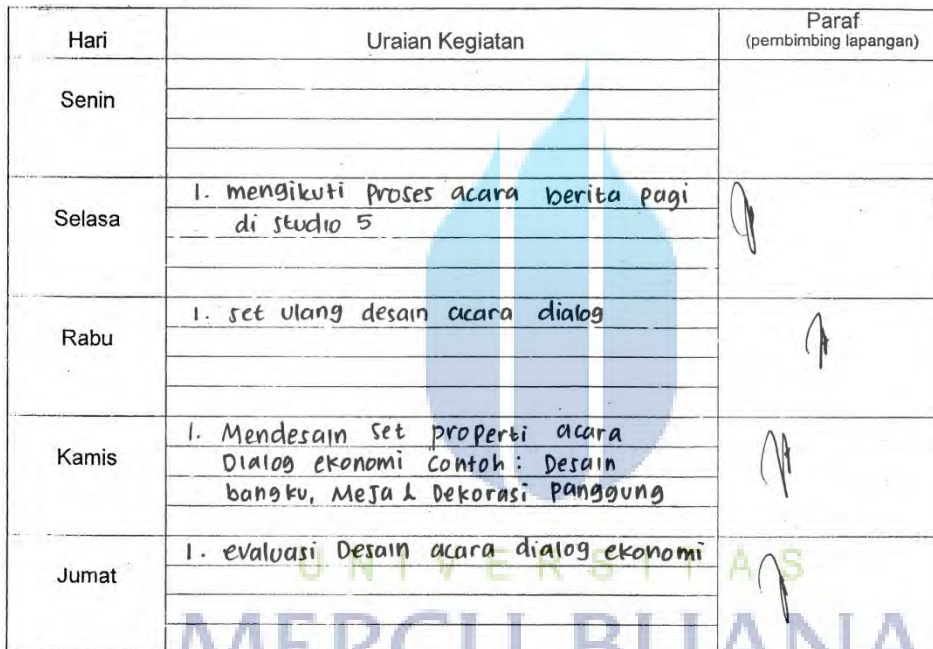 Hari Uraian Kegiatan Paraf
(pembimbing lapangan)
Senin
Selasa
1. mengikuti Proses acara berita pagi
di studio 5
Rabu
1. set ulang desain acara dialog
Kamis
1. Mendesain set properti acara
Dialog ekonomi contoh : Desain
bangku, Meja & Dekorasi panggung
Jumat
1. evaluasi Desain acara dialog ekonomi
UNIVERSITAS
MERCU BUANA